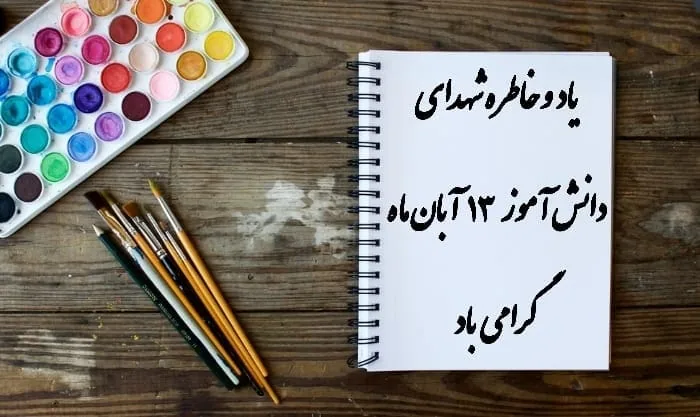 یاد و خاطره شهدای
دانش آموز ۱۳ آبان ماه
گرامی باد